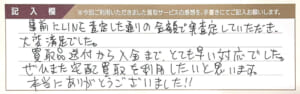 記入欄 ※今回ご利用いただきました弊社サービスの感想を、手書きにてご記入お願いします。
事前にLINE査定した通りの金額で買査定していただき、
大変満足でした。
買取品送付から入金まで、とても早い対応でした。
ぜひまた宅配買取を利用したいと思います。
本当にありがとうございました!!